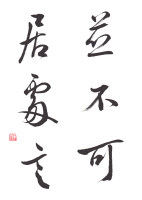 並不可
居處之